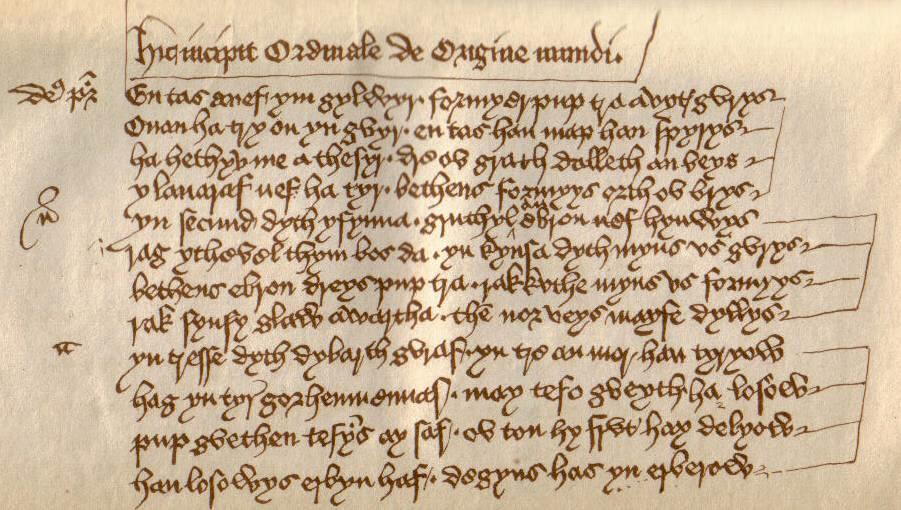 Hic incipit Ordinale de Origine mundi.
de⁹ pr̄
En tas a nef ym gylwyr · formyer pup tra a vyt gvrys
Onan ha try on yn gvyr · en tas han map han spyrys
ha hethyv me a thesyr · dre ov grath dalleth an beys
y lavaraf nef ha tyr · bethens formyys orth ov brys
yn secund dyth y fynna · gruthyl ebron nef hynwys
rag ythevel thym bos da · yn kynsa dyth myns vs gvrys
bethens ebron dreys pup tra · rak kvthe myns vs formyys
rak synsy glaw awartha · the nor veys may fe dyllys
yn tresse dyth dybarth gvraf · yn tre an mor han tyryow
hag yn tyr gorhenmennaf · may tefo gveyth ha losow
pup gvethen tefyns ay saf · ov ton hy frvt hay delyow
han losowys erbyn haf · degyns has yn erberow